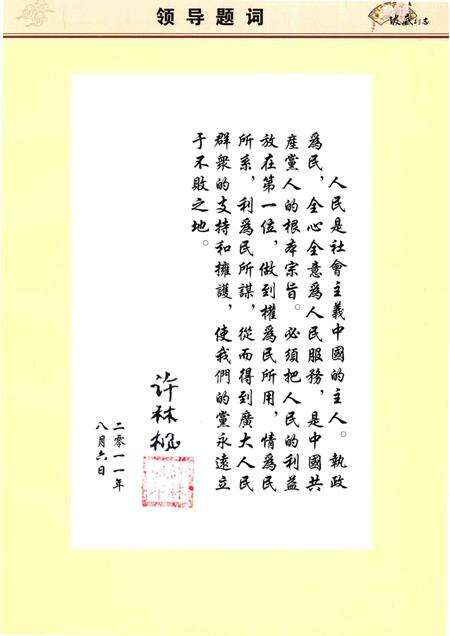 领导题词
人民是社會主義中國的主人。執政
爲民，全心全意爲人民服務，是中國共
產黨人的根本宗旨。必須把人民的利益
放在第一位，做到權爲民所用，情爲民
所系，利爲民所謀，從而得到廣大人民
群衆的支持和擁護，使我們的黨永遠立
于不敗之地。
许林
二零一一年
八月六日